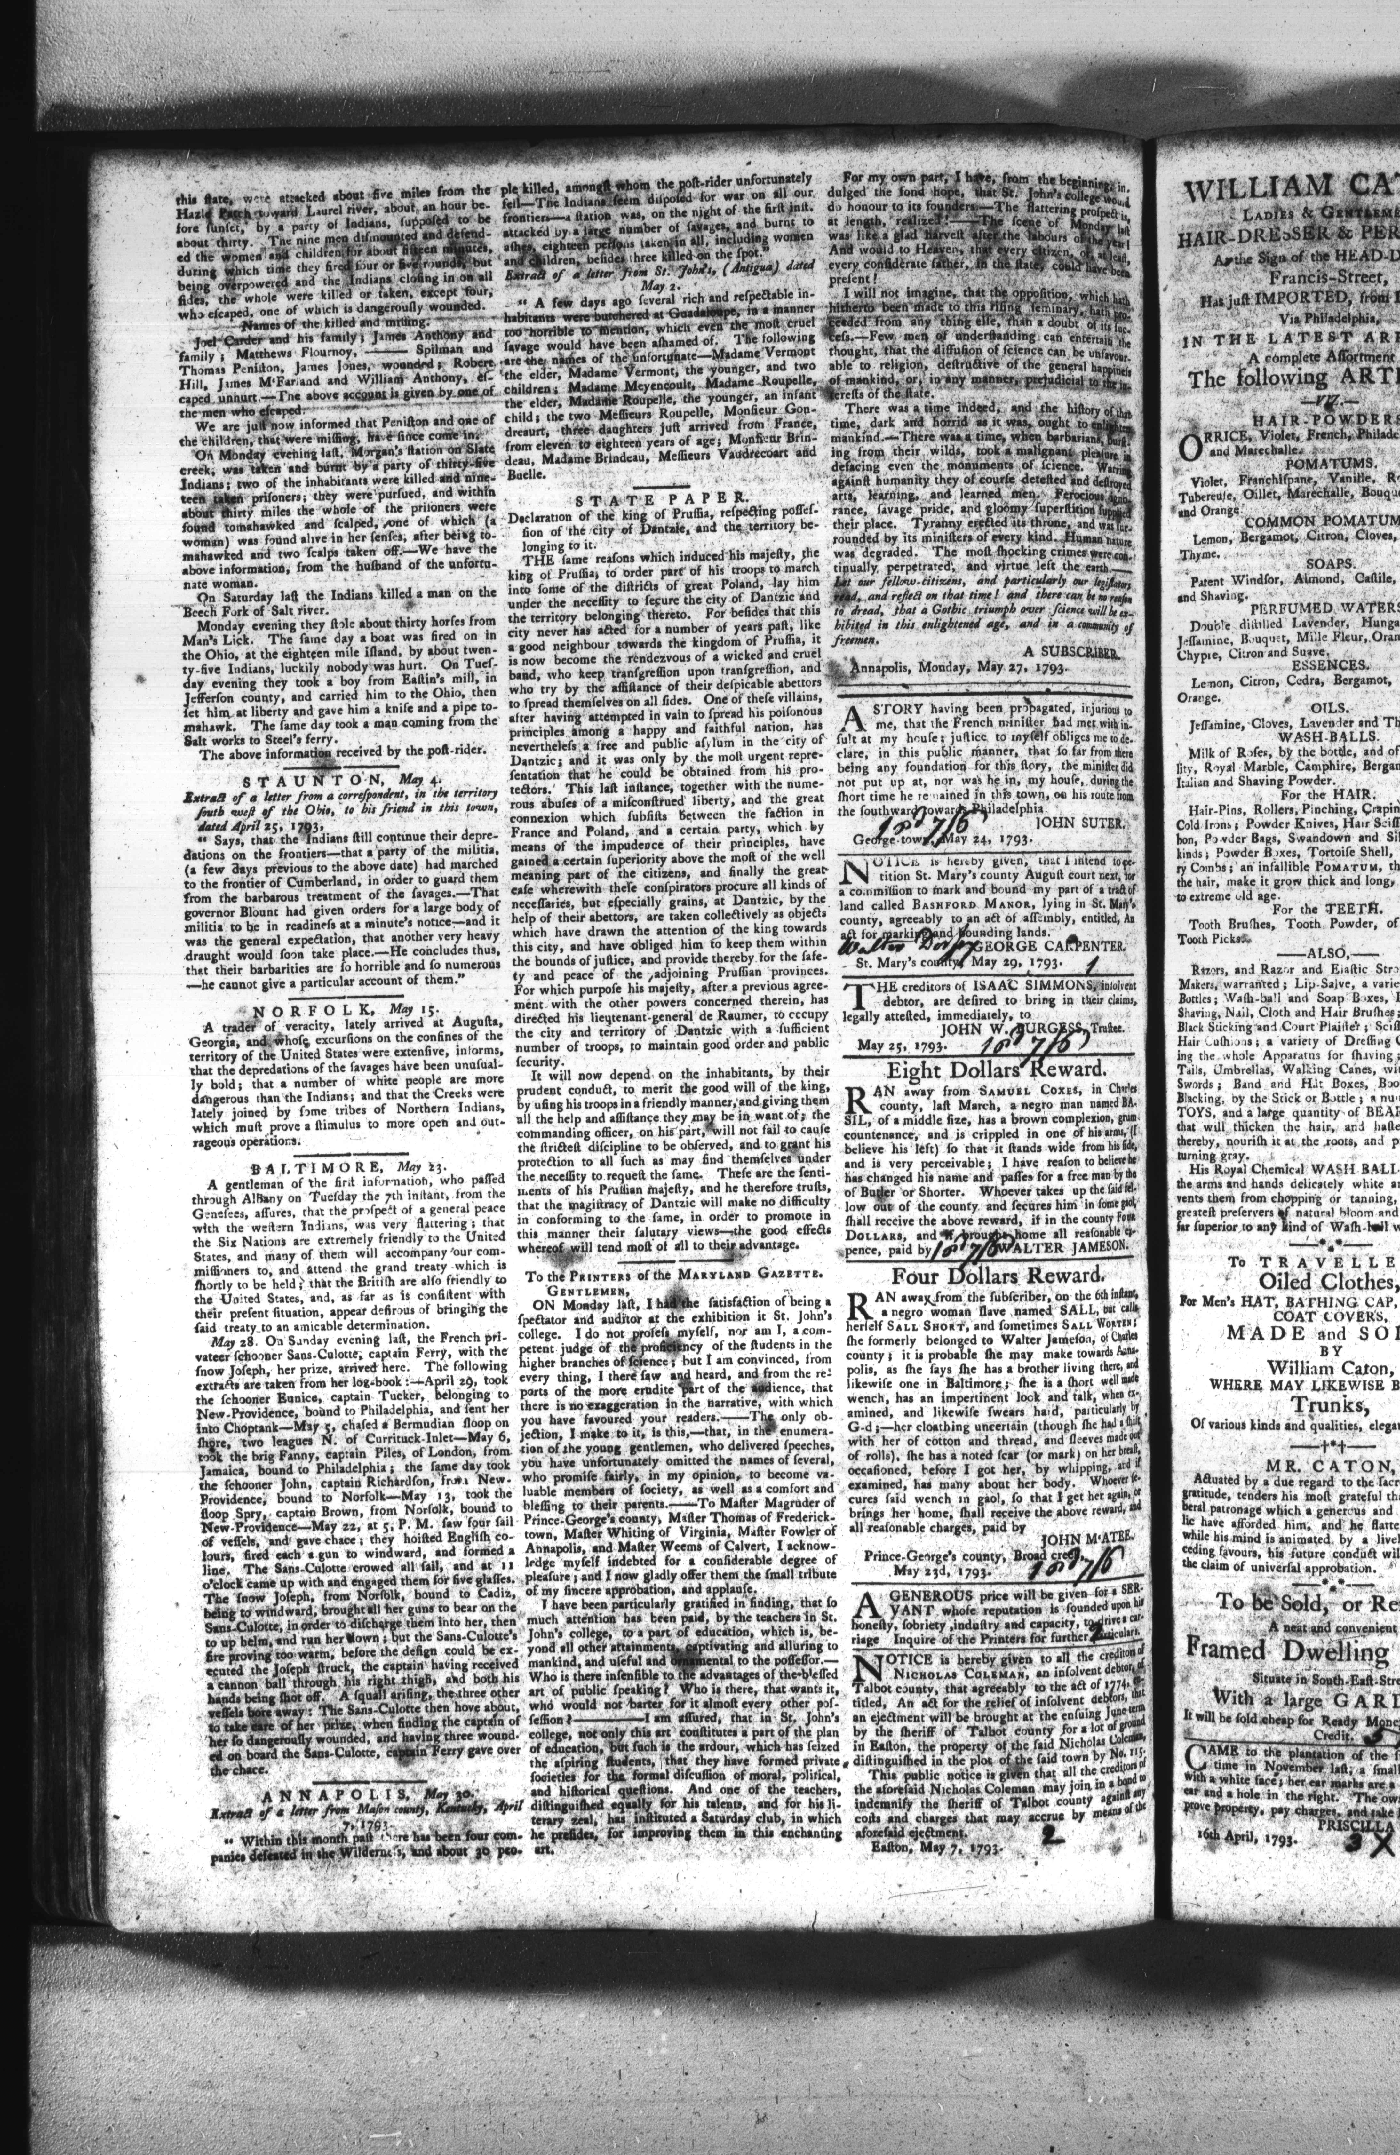 this ſtate, were attacked about five miles from the
Hazle Patch toward Laurel river, about an hour be-
fore ſunſet, by a party of Indians, ſuppoſed to be
about thirty. The nine men diſmounted and defend-
ed the women and children for about fifteen minutes,
during which time they fired four or five rounds, but
being overpowered and the Indians cloſing in on all
ſides, the whole were killed or taken, except four,
who eſcaped, one of which is dangerouſly wounded.
Names of the killed and miſſing.
Joel Carder and his family; James Anthony and
family; Matthews Flournoy, —— Spilman and
Thomas Peniſton, James Jones, wounded; Robert
Hill, James M'Farland and William Anthony, eſ-
caped unhurt.—The above account is given by one of
the men who eſcaped.
We are juſt now informed that Peniſton and one of
the children, that were miſſing, have ſince come in.
On Monday evening laſt, Morgan's ſtation on Slate
creek, was taken and burnt by a party of thirty-five
Indians; two of the inhabitants were killed and nine-
teen taken priſoners; they were purſued, and within
about thirty miles the whole of the priſoners were
found tomahawked and ſcalped, one of which (a
woman) was found alive in her ſenſes, after being to-
mahawked and two ſcalps taken off.—We have the
above information, from the huſband of the unfortu-
nate woman.
On Saturday laſt the Indians killed a man on the
Beech Fork of Salt river.
Monday evening they ſtole about thirty horſes from
Man's Lick. The ſame day a boat was fired on in
the Ohio, at the eighteen mile iſland, by about twen-
ty-five Indians, luckily nobody was hurt. On Tueſ-
day evening they took a boy from Eaſtin's mill, in
Jefferſon county, and carried him to the Ohio, then
ſet him at liberty and gave him a knife and a pipe to-
mahawk. The ſame day took a man coming from the
Salt works to Steel's ferry.
The above information received by the poſt-rider.
STAUNTON, May 4.
Extract of a letter from a correſpondent, in the territory
ſouth weſt of the Ohio, to his friend in this town,
dated April 25, 1793.
" Says, that the Indians ſtill continue their depre-
dations on the frontiers—that a party of the militia,
(a few days previous to the above date) had marched
to the frontier of Cumberland, in order to guard them
from the barbarous treatment of the ſavages.—That
governor Blount had given orders for a large body of
militia to be in readineſs at a minute's notice—and it
was the general expectation, that another very heavy
draught would ſoon take place.—He concludes thus,
that their barbarities are ſo horrible and ſo numerous
—he cannot give a particular account of them."
NORFOLK, May 15.
A trader of veracity, lately arrived at Auguſta,
Georgia, and whoſe excurſions on the confines of the
territory of the United States were extenſive, informs,
that the depredations of the ſavages have been unuſual-
ly bold; that a number of white people are more
dangerous than the Indians; and that the Creeks were
lately joined by ſome tribes of Northern Indians,
which muſt prove a ſtimulus to more open and out-
rageous operations.
BALTIMORE, May 23.
A gentleman of the firſt information, who paſſed
through Albany on Tueſday the 7th inſtant, from the
Geneſees, aſſures, that the proſpect of a general peace
with the weſtern Indians, was very flattering; that
the Six Nations are extremely friendly to the United
States, and many of them will accompany our com-
miſſioners to, and attend the grand treaty which is
ſhortly to be held; that the Britiſh are alſo friendly to
the United States, and, as far as is conſiſtent with
their preſent ſituation, appear deſirous of bringing the
ſaid treaty to an amicable determination.
May 28. On Sunday evening laſt, the French pri-
vateer ſchooner Sans-Culotte, captain Ferry, with the
ſnow Joſeph, her prize, arrived here. The following
extracts are taken from her log-book:—April 29, took
the ſchooner Eunice, captain Tucker, belonging to
New-Providence, bound to Philadelphia, and ſent her
into Choptank—May 5, chaſed a Bermudian ſloop on
ſhore, two leagues N. of Currituck-Inlet—May 6,
took the brig Fanny, captain Piles, of London, from
Jamaica, bound to Philadelphia; the ſame day took
the ſchooner John, captain Richardſon, from New-
Providence, bound to Norfolk—May 13, took the
ſloop Spry, captain Brown, from Norfolk, bound to
New-Providence—May 22, at 5, P. M. ſaw four ſail
of veſſels, and gave chace; they hoiſted Engliſh co-
lours, fired each a gun to windward, and formed a
line. The Sans-Culotte crowed all ſail, and at 11
o'clock came up with and engaged them for five glaſſes.
The ſnow Joſeph, from Norfolk, bound to Cadiz,
being to windward, brought all her guns to bear on the
Sans-Culotte, in order to diſcharge them into her, then
to up helm, and run her down; but the Sans-Culotte's
fire proving too warm, before the deſign could be ex-
ecuted the Joſeph ſtruck, the captain having received
a cannon ball through his right thigh, and both his
hands being ſhot off. A ſquall ariſing, the three other
veſſels bore away: The Sans-Culotte then hove about,
to take care of her prize, when finding the captain of
her ſo dangerouſly wounded, and having three wound-
ed on board the Sans-Culotte, captain Ferry gave over
the chace.
ANNAPOLIS, May 30.
Extract of a letter from Maſon county, Kentucky, April
7, 1793.
" Within this month paſt there has been four com-
panies defeated in the Wilderneſs, and about 30 peo-
ple killed, amongſt whom the poſt-rider unfortunately
fell—The Indians ſeem diſpoſed for war on all our
frontiers—a ſtation was, on the night of the firſt inſt.
attacked by a large number of ſavages, and burnt to
aſhes, eighteen perſons taken in all, including women
and children, beſides three killed on the ſpot."
Extract of a letter from St. John's, (Antigua) dated
May 2.
" A few days ago ſeveral rich and reſpectable in-
habitants were butchered at Guadaloupe, in a manner
too horrible to mention, which even the moſt cruel
ſavage would have been aſhamed of. The following
are the names of the unfortunate—Madame Vermont
the elder, Madame Vermont, the younger, and two
children; Madame Meyencoult, Madame Roupelle,
the elder, Madame Roupelle, the younger, an infant
child; the two Meſſieurs Roupelle, Monſieur Gon-
dreaurt, three daughters juſt arrived from France,
from eleven to eighteen years of age; Monſieur Brin-
deau, Madame Brindeau, Meſſieurs Vaudrecourt and
Buelle.
STATE PAPER.
Declaration of the king of Pruſſia, reſpecting poſſeſ-
ſion of the city of Dantzic, and the territory be-
longing to it.
THE ſame reaſons which induced his majeſty, the
king of Pruſſia, to order part of his troops to march
into ſome of the diſtricts of great Poland, lay him
under the neceſſity to ſecure the city of Dantzic and
the territory belonging thereto. For beſides that this
city never has acted for a number of years paſt, like
a good neighbour towards the kingdom of Pruſſia, it
is now become the rendezvous of a wicked and cruel
band, who keep tranſgreſſion upon tranſgreſſion, and
who try by the aſſiſtance of their deſpicable abettors
to ſpread themſelves on all ſides. One of theſe villains,
after having attempted in vain to ſpread his poiſonous
principles among a happy and faithful nation, has
nevertheleſs a free and public aſylum in the city of
Dantzic; and it was only by the moſt urgent repre-
ſentation that he could be obtained from his pro-
tectors. This laſt inſtance, together with the nume-
rous abuſes of a miſconſtrued liberty, and the great
connexion which ſubſiſts between the faction in
France and Poland, and a certain party, which by
means of the impudence of their principles, have
gained a certain ſuperiority above the moſt of the well
meaning part of the citizens, and finally the great
eaſe wherewith theſe conſpirators procure all kinds of
neceſſaries, but eſpecially grains, at Dantzic, by the
help of their abettors, are taken collectively as objects
which have drawn the attention of the king towards
this city, and have obliged him to keep them within
the bounds of juſtice, and provide thereby for the ſafe-
ty and peace of the adjoining Pruſſian provinces.
For which purpoſe his majeſty, after a previous agree-
ment with the other powers concerned therein, has
directed his lieutenant-general de Raumer, to occupy
the city and territory of Dantzic with a ſufficient
number of troops, to maintain good order and public
ſecurity.
It will now depend on the inhabitants, by their
prudent conduct, to merit the good will of the king,
by uſing his troops in a friendly manner, and giving them
all the help and aſſiſtance they may be in want of; the
commanding officer, on his part, will not fail to cauſe
the ſtricteſt diſcipline to be obſerved, and to grant his
protection to all ſuch as may find themſelves under
the neceſſity to requeſt the ſame. Theſe are the ſenti-
ments of his Pruſſian majeſty, and he therefore truſts,
that the magiſtracy of Dantzic will make no difficulty
in conforming to the ſame, in order to promote in
this manner their ſalutary views—the good effects
whereof will tend moſt of all to their advantage.
To the PRINTERS of the MARYLAND GAZETTE.
GENTLEMEN,
ON Monday laſt, I had the ſatisfaction of being a
ſpectator and auditor at the exhibition it St. John's
college. I do not profeſs myſelf, nor am I, a com-
petent judge of the proficiency of the ſtudents in the
higher branches of ſcience; but I am convinced, from
every thing, I there ſaw and heard, and from the re-
ports of the more erudite part of the audience, that
there is no exaggeration in the narrative, with which
you have favoured your readers.——The only ob-
jection, I make to it, is this,—that, in the enumera-
tion of the young gentlemen, who delivered ſpeeches,
you have unfortunately omitted the names of ſeveral,
who promiſe fairly, in my opinion, to become va-
luable members of ſociety, as well as a comfort and
bleſſing to their parents.——To Maſter Magruder of
Prince-George's county, Maſter Thomas of Frederick-
town, Maſter Whiting of Virginia, Maſter Fowler of
Annapolis, and Maſter Weems of Calvert, I acknow-
ledge myſelf indebted for a conſiderable degree of
pleaſure; and I now gladly offer them the ſmall tribute
of my ſincere approbation, and applauſe.
I have been particularly gratified in finding, that ſo
much attention has been paid, by the teachers in St.
John's college, to a part of education, which is, be-
yond all other attainments, captivating and alluring to
mankind, and uſeful and ornamental to the poſſeſſor.—
Who is there inſenſible to the advantages of the bleſſed
art of public ſpeaking? Who is there, that wants it,
who would not barter for it almoſt every other poſ-
ſeſſion?———I am aſſured, that in St. John's
college, not only this art conſtitutes a part of the plan
of education, but ſuch is the ardour, which has ſeized
the aſpiring ſtudents, that they have formed private
ſocieties for the formal diſcuſſion of moral, political,
and hiſtorical queſtions. And one of the teachers,
diſtinguiſhed equally for his talents, and for his li-
terary zeal, has inſtituted a Saturday club, in which
he preſides, for improving them in this enchanting
art.
For my own part, I have, from the beginning, in-
dulged the fond hope, that St. John's college would
do honour to its founders—The flattering proſpect is,
at length, realized!——The ſcene of Monday laſt
was like a glad harveſt after the labours of the year!
And would to Heaven, that every citizen, or, at leaſt,
every conſiderate father, in the ſtate, could have been
preſent!
I will not imagine, that the oppoſition, which hath
hitherto been made to this riſing ſeminary, hath pro-
ceeded from any thing elſe, than a doubt of its ſuc-
ceſs.—Few men of underſtanding can entertain the
thought, that the diffuſion of ſcience can be unfavour-
able to religion, deſtructive of the general happineſs
of mankind, or, in any manner, prejudicial to the in-
tereſts of the ſtate.
There was a time indeed, and the hiſtory of that
time, dark and horrid as it was, ought to enlighten
mankind.—There was a time, when barbarians, burſt-
ing from their wilds, took a malignant pleaſure in
defacing even the monuments of ſcience. Warring
againſt humanity they of courſe deteſted and deſtroyed
arts, learning, and learned men. Ferocious igno-
rance, ſavage pride, and gloomy ſuperſtition ſupplied
their place. Tyranny erected its throne, and was ſur-
rounded by its miniſters of every kind. Human nature
was degraded. The moſt ſhocking crimes were con-
tinually, perpetrated, and virtue left the earth.——
Let our fellow-citizens, and particularly our legiſlators
read, and reflect on that time! and there can be no reaſon
to dread, that a Gothic triumph over ſcience will be ex-
hibited in this enlightened age, and in a community of
freemen.
A SUBSCRIBER.
Annapolis, Monday, May 27, 1793.
A STORY having been propagated, injurious to
me, that the French miniſter had met with in-
ſult at my houſe; juſtice to myſelf obliges me to de-
clare, in this public manner, that ſo far from there
being any foundation for this ſtory, the miniſter did
not put up at, nor was he in, my houſe, during the
ſhort time he remained in this town, on his route from
the ſouthward towards Philadelphia.
JOHN SUTER.
George-town, May 24, 1793.
NOTICE is hereby given, that I intend to pe-
tition St. Mary's county Auguſt court next, for
a commiſſion to mark and bound my part of a tract of
land called BASHFORD MANOR, lying in St. Mary's
county, agreeably to an act of aſſembly, entitled, An
act for marking and bounding lands.
Walter Dorſey
GEORGE CARPENTER.
St. Mary's county, May 29, 1793. 1
THE creditors of ISAAC SIMMONS, inſolvent
debtor, are deſired to bring in their claims,
legally atteſted, immediately, to
JOHN W. BURGESS, Truſtee.
May 25, 1793.
Eight Dollars Reward.
RAN away from SAMUEL COXES, in Charles
county, laſt March, a negro man named BA-
SIL, of a middle ſize, has a brown complexion, grum
countenance, and is crippled in one of his arms, (I
believe his left) ſo that it ſtands wide from his ſide,
and is very perceivable; I have reaſon to believe he
has changed his name and paſſes for a free man by the
of Butler or Shorter. Whoever takes up the ſaid fel-
low out of the county and ſecures him in ſome gaol,
ſhall receive the above reward, if in the county FOUR
DOLLARS, and if brought home all reaſonable ex-
pence, paid by WALTER JAMESON.
Four Dollars Reward.
RAN away from the ſubſcriber, on the 6th inſtant,
a negro woman ſlave named SALL, but calls
herſelf SALL SHORT, and ſometimes SALL WORTEN;
ſhe formerly belonged to Walter Jameſon, of Charles
county; it is probable ſhe may make towards Anna-
polis, as ſhe ſays ſhe has a brother living there, and
likewiſe one in Baltimore; ſhe is a ſhort well made
wench, has an impertinent look and talk, when ex-
amined, and likewiſe ſwears hard, particularly by
G-d;—her cloathing uncertain (though ſhe had a ſhift
with her of cotton and thread, and ſleeves made out
of rolls), ſhe has a noted ſcar (or mark) on her breaſt,
occaſioned, before I got her, by whipping, and if
examined, has many about her body. Whoever ſe-
cures ſaid wench in gaol, ſo that I get her again, or
brings her home, ſhall receive the above reward, and
all reaſonable charges, paid by
JOHN M'ATEE.
Prince-George's county, Broad creek,
May 23d, 1793.
A GENEROUS price will be given for a SER-
VANT whoſe reputation is founded upon his
honeſty, ſobriety, induſtry and capacity, to drive a car-
riage Inquire of the Printers for further particulars.
2
NOTICE is hereby given to all the creditors of
NICHOLAS COLEMAN, an inſolvent debtor, of
Talbot county, that agreeably to the act of 1774, en-
titled, An act for the relief of inſolvent debtors, that
an ejectment will be brought at the enſuing June term
by the ſheriff of Talbot county for a lot of ground
in Eaſton, the property of the ſaid Nicholas Coleman,
diſtinguiſhed in the plot of the ſaid town by No. 115.
This public notice is given that all the creditors of
the aforeſaid Nicholas Coleman may join in a bond to
indemnify the ſheriff of Talbot county againſt any
coſts and charges that may accrue by means of the
aforeſaid ejectment.
Eaſton, May 7, 1793. 2
WILLIAM CAT
LADIES & GENTLEME
HAIR-DRESSER & PER
At the Sign of the HEAD-D
Francis-Street,
Has juſt IMPORTED, from
Via Philadelphia,
IN THE LATEST ARR
A complete Aſſortment
The following ARTI
—VIZ.—
HAIR-POWDERS
ORRICE, Violet, French, Philade
and Marechalle.
POMATUMS.
Violet, Franchiſpane, Vanille, R
Tubereuſe, Oillet, Marechalle, Bouqu
and Orange
COMMON POMATUM
Lemon, Bergamot, Citron, Cloves,
Thyme.
SOAPS.
Patent Windſor, Almond, Caſtile,
and Shaving.
PERFUMED WATERS
Double diſtilled Lavender, Hunga
Jeſſamine, Bouquet, Mille Fleur, Oran
Chypre, Citron and Suave.
ESSENCES.
Lemon, Citron, Cedra, Bergamot,
Orange.
OILS.
Jeſſamine, Cloves, Lavender and Th
WASH-BALLS.
Milk of Roſes, by the bottle, and of
lity, Royal Marble, Camphire, Bergam
Italian and Shaving Powder.
For the HAIR.
Hair-Pins, Rollers, Pinching, Crapin
Cold Irons; Powder Knives, Hair Sciſſ
bon, Powder Bags, Swandown and Sil
kinds; Powder Boxes, Tortoiſe Shell,
ry Combs; an infallible POMATUM, th
the hair, make it grow thick and long,
to extreme old age.
For the TEETH.
Tooth Bruſhes, Tooth Powder, of
Tooth Picks.
—ALSO,—
Razors, and Razor and Elaſtic Stro
Makers, warranted; Lip-Salve, a varie
Bottles; Waſh-ball and Soap Boxes,
Shaving, Nail, Cloth and Hair Bruſhes;
Black Sticking and Court Plaiſter; Sciſ
Hair Cuſhions; a variety of Dreſſing C
ing the whole Apparatus for ſhaving;
Tails, Umbrellas, Walking Canes, wi
Swords; Band and Hat Boxes, Boo
Blacking, by the Stick or Bottle; a nu
TOYS, and a large quantity of BEAR
that will thicken the hair, and haſte
thereby, nouriſh it at the roots, and p
turning gray.
His Royal Chemical WASH-BALL
the arms and hands delicately white an
vents them from chopping or tanning,
greateſt preſervers of natural bloom and
far ſuperior to any kind of Waſh-ball w
To TRAVELLE
Oiled Clothes,
For Men's HAT, BATHING CAP,
COAT COVERS,
MADE and SOL
BY
William Caton,
WHERE MAY LIKEWISE B
Trunks,
Of various kinds and qualities, elegan
—†*†—
MR. CATON,
Actuated by a due regard to the ſacr
gratitude, tenders his moſt grateful th
beral patronage which a generous and
lic have afforded him, and he flatte
while his mind is animated by a livel
ceding favours, his future conduct will
the claim of univerſal approbation.
To be Sold, or Re
A neat and convenient
Framed Dwelling
Situate in South-Eaſt-Stre
With a large GARD
It will be ſold cheap for Ready Mone
Credit.
CAME to the plantation of the ſ
time in November laſt, a ſmall
with a white face; her ear marks are a
ear and a hole in the right. The own
prove property, pay charges, and take
PRISCILLA
16th April, 1793. 3 X